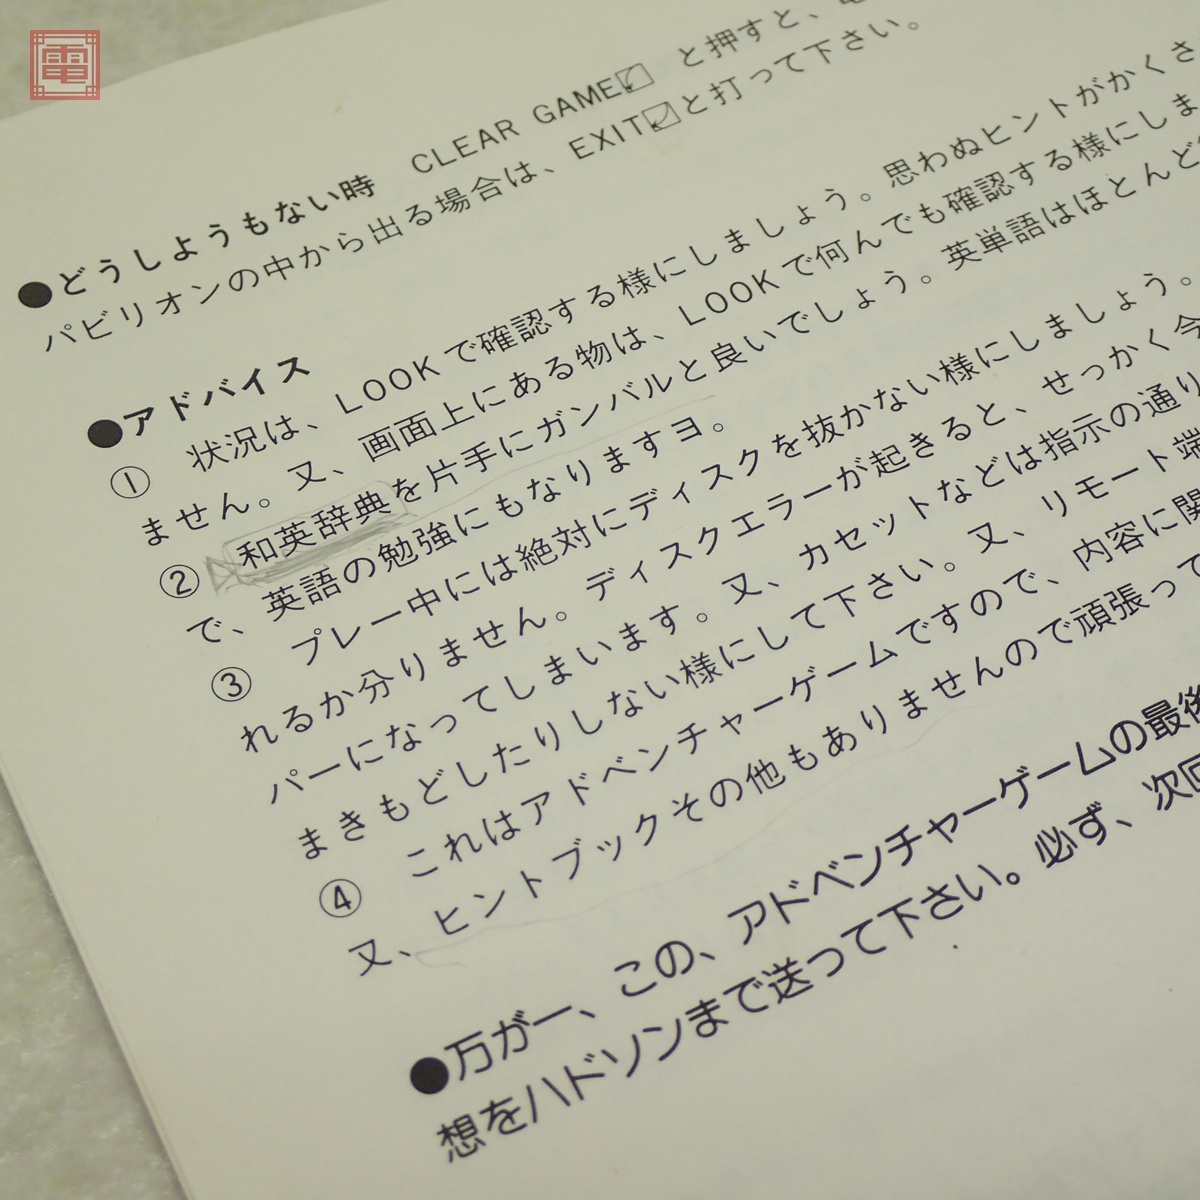 電
●どうしようもない時 CLEAR GAME と押すと、電
パビリオンの中から出る場合は、EXIT と打って下さい。
●アドバイス
① 状況は、LOOKで確認する様にしましょう。思わぬヒントがかくさ
ません。又、画面上にある物は、LOOKで何んでも確認する様にしま
② 和英辞典を片手にガンバルと良いでしょう。英単語はほとんど
で、英語の勉強にもなりますヨ。
③ プレー中には絶対にディスクを抜かない様にしましょう。
れるか分りません。ディスクエラーが起きると、せっかく今
パーになってしまいます。又、カセットなどは指示の通り
まきもどしたりしない様にして下さい。又、リモート端
④ これはアドベンチャーゲームですので、内容に関
又、ヒントブックその他もありませんので頑張って
●万が一、この、アドベンチャーゲームの最後
想をハドソンまで送って下さい。必ず、次回